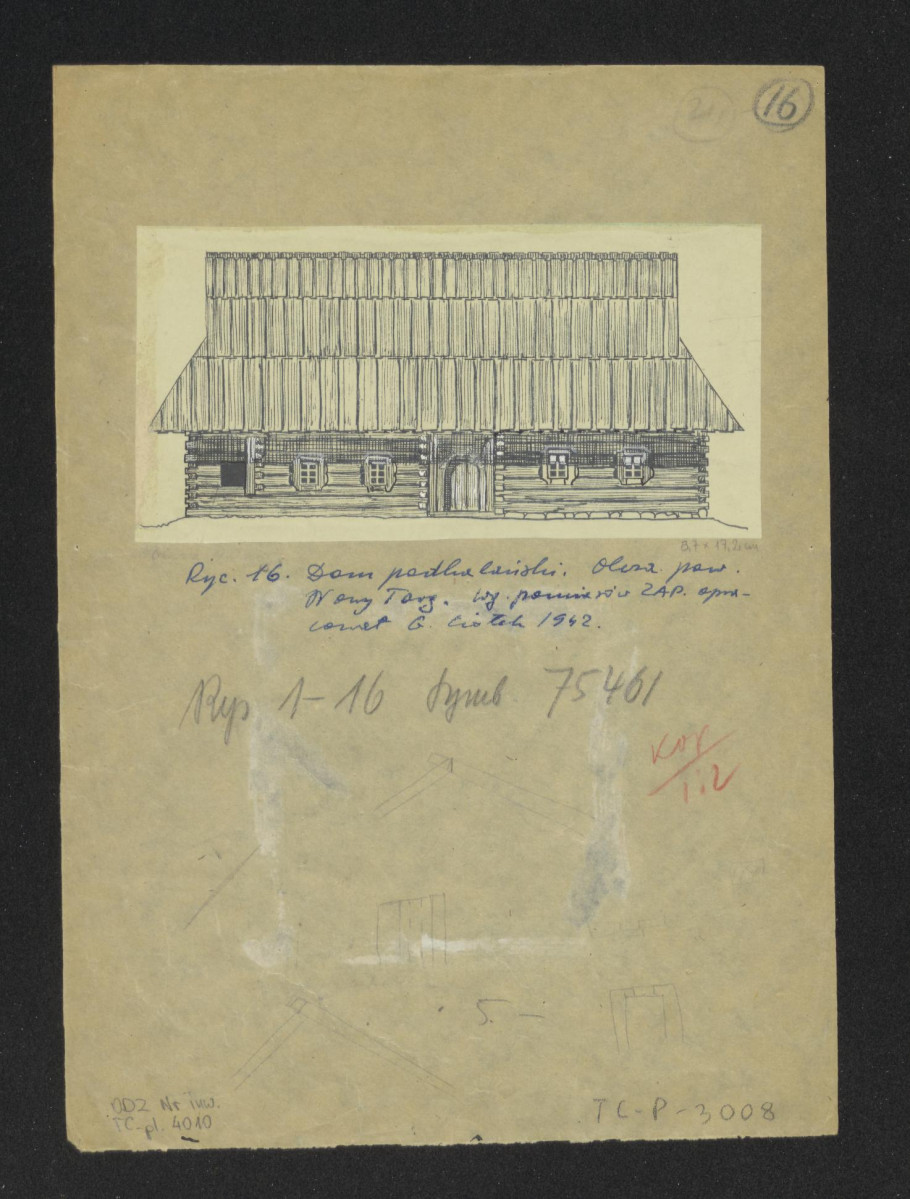 16
8,7 × 17,2 cm
Ryc. 16. Dom podhalański. Olcza pow.
Nowy Targ. wg. pomiarów ZAP. opra-
cował G. Ciołek 1942.
Rys 1-16 symb. 75461
Kor
1:2
5. —
DDZ Nr inw.
TC-pl. 4010
TC-P-3008